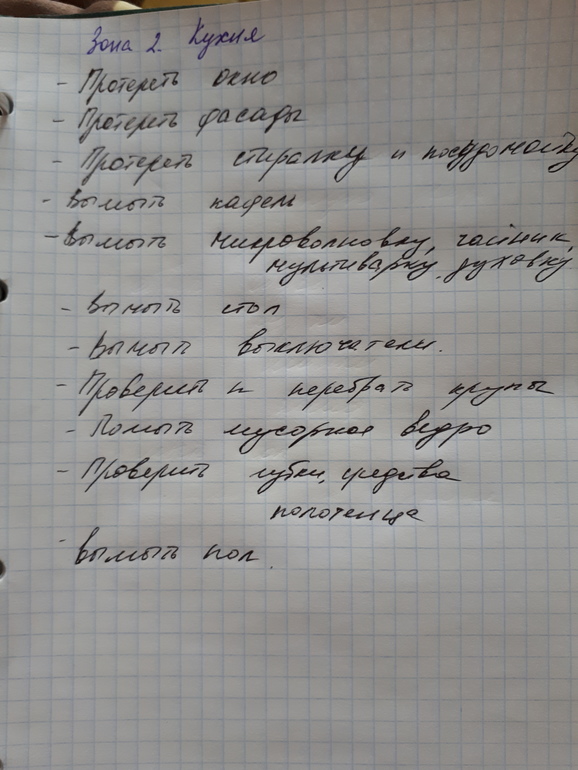 Зона 2. Кухня
- Протереть окно
- Протереть фасады
- Протереть стиралку и посудомойку
- Вымыть кафель
- Вымыть микроволновку, чайник,
мультиварку, духовку
- Вымыть стол
- Вымыть выключатели.
- Проверить и перебрать крупы
- Помыть мусорное ведро
- Проверить губки, средства
полотенца
- Вымыть пол.